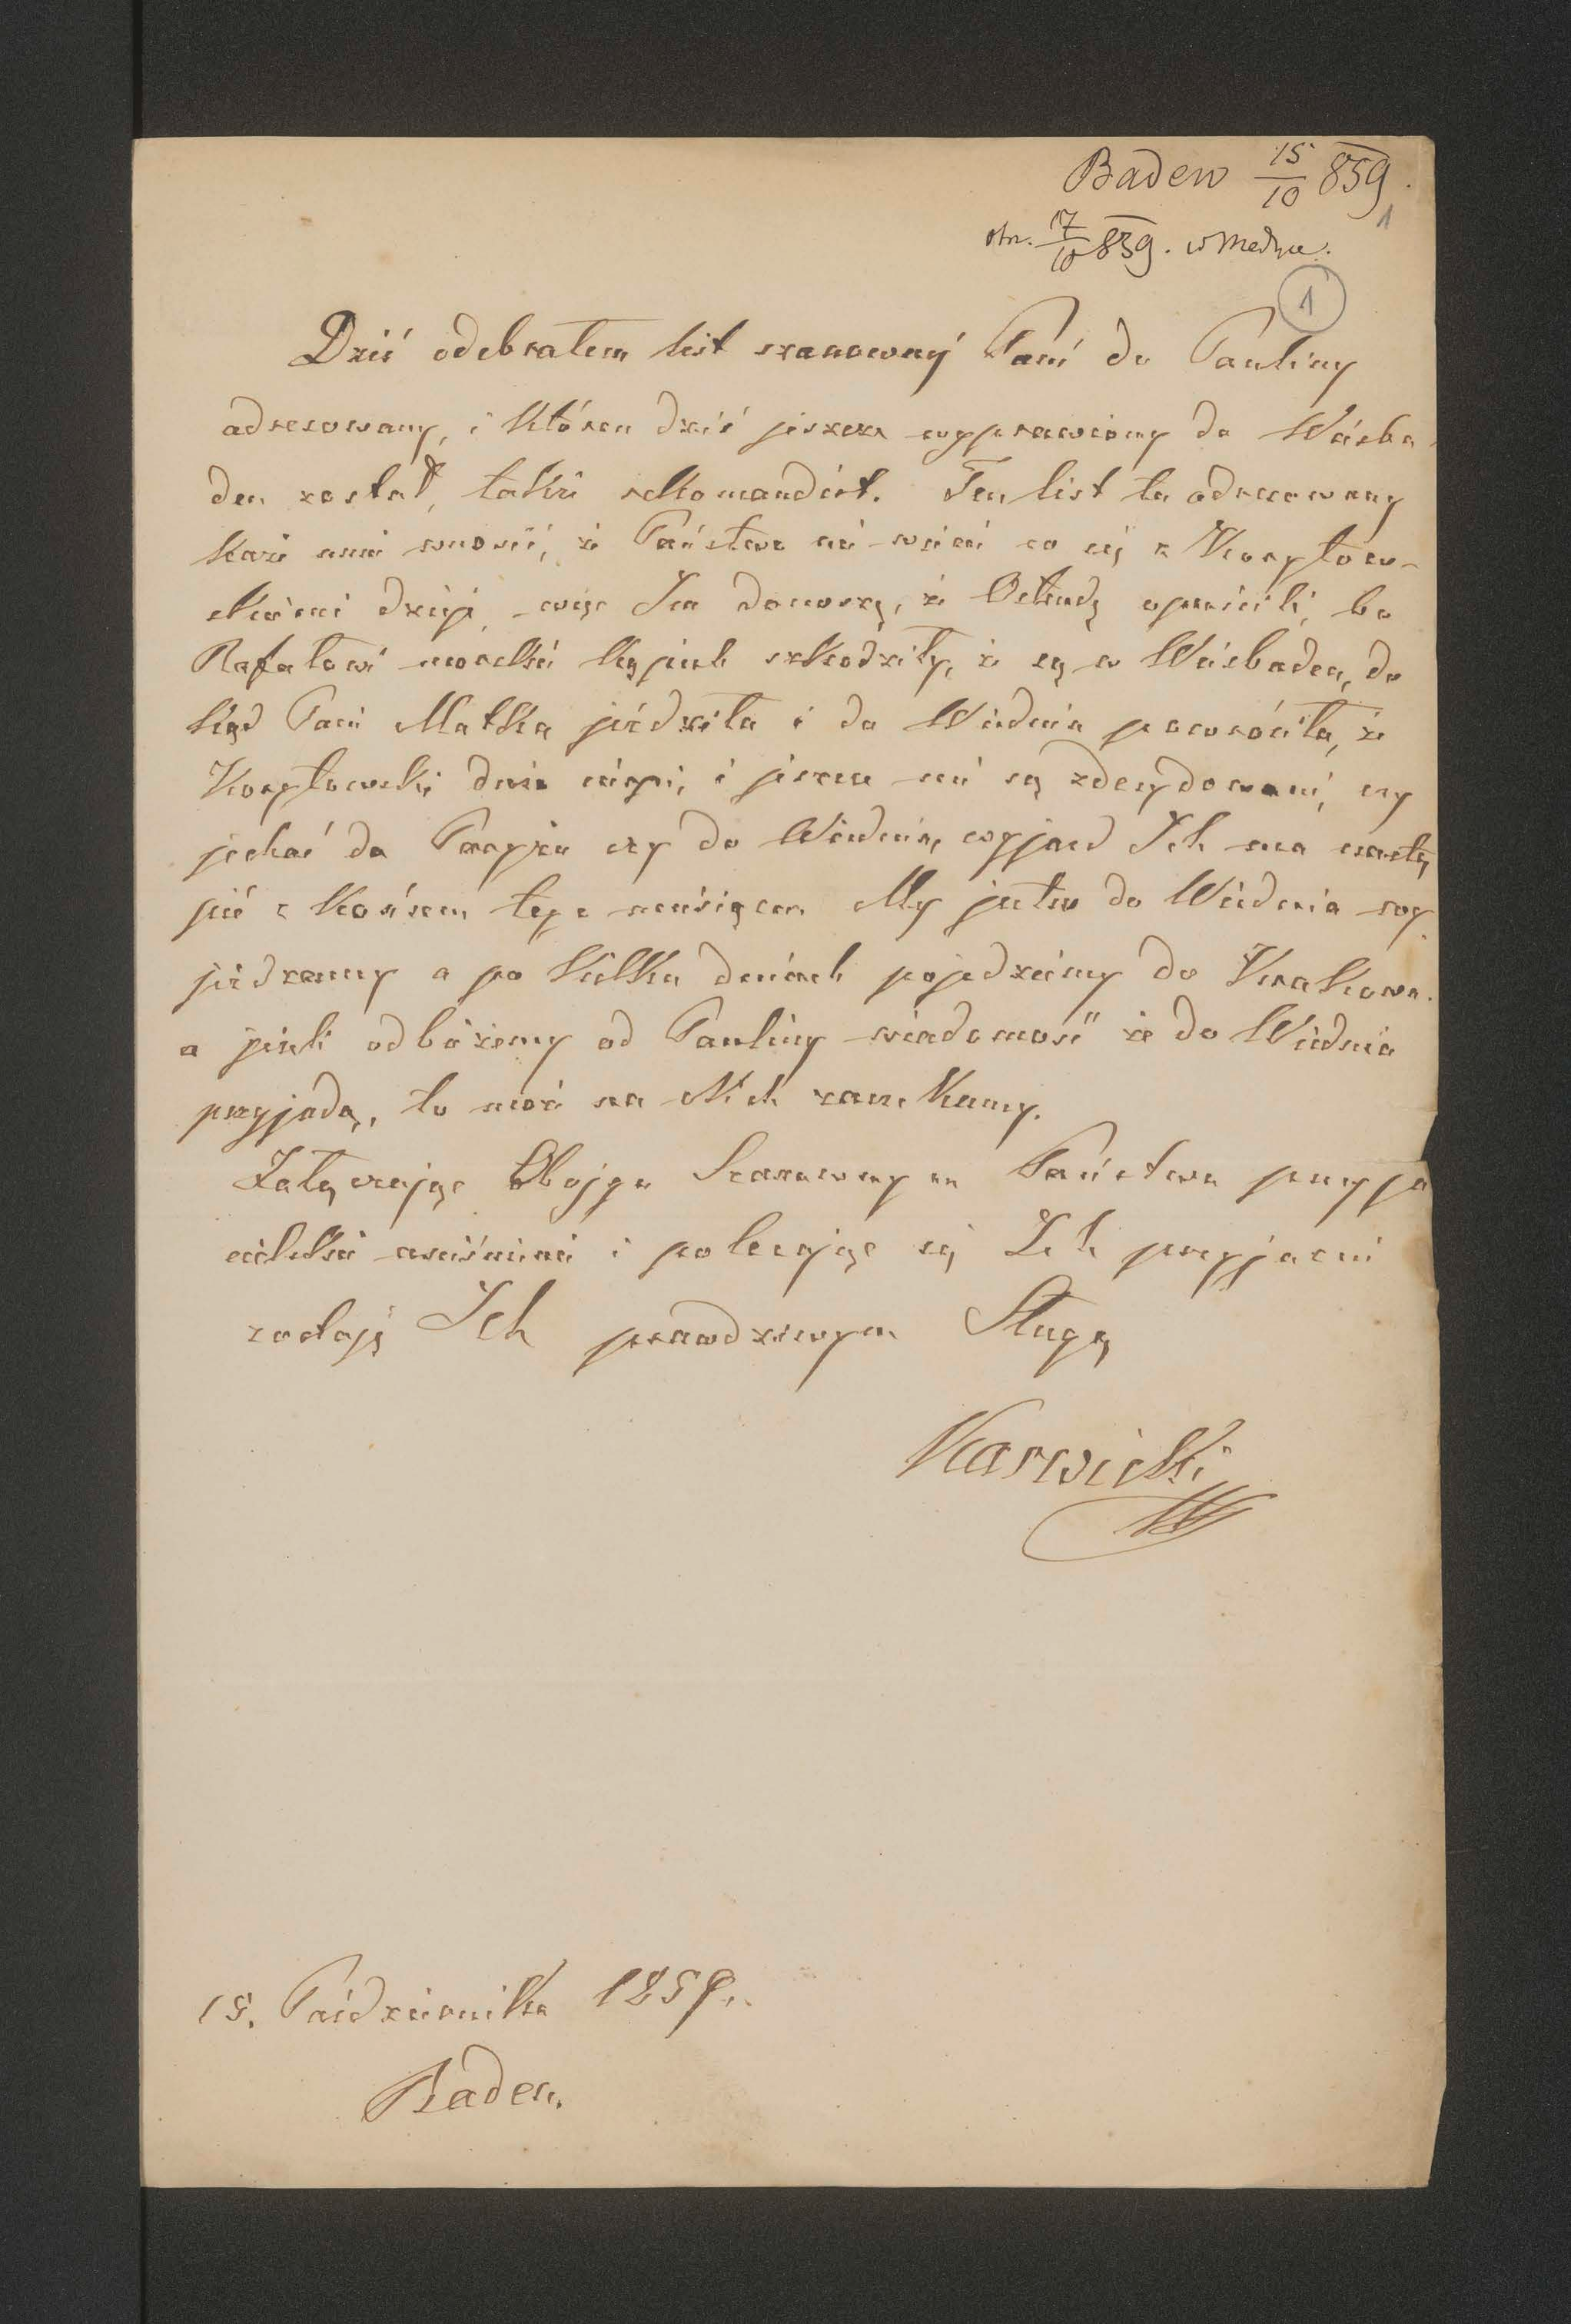 Baden 15/10 859.
1
otr. 17/10 859. w Medyce.
1
Dziś odebrałem list szanownéj Pani do Pauliny
adresowany, i któren dziś jeszcze wyprawiony do Wiesba-
den został, także rekomandirt. Ten list tu adresowany
każe mnie wnosić, że Państwo nie wiecie co się z Korytow-
skiemi dzieje, więc Im donoszę, że Ostendę opuścili, bo
Rafałowi morskie kąpiele szkodziły, że są w Wiesbaden, do
kąd Pani Matka jeździła i do Wiednia powróciła, że
Korytowski cierpi, i jeszcze nie są zdecydowani, czy
jechać do Paryża czy do Wiednia, wyjazd Ich ma nastą
pić z końcem tego miesiąca. My jutro do Wiednia wy
jeżdżamy a po kilku dniach pojedziemy do Krakowa.
a jeżeli odbierzemy od Pauliny wiadomość że do Wiednia
przyjadą, to może na Nich zaczekamy.
Załączając Obojgu Szanownym Państwu przyja
cielskie uściśnienie i polecając się Ich przyjaźni
zostaję Ich prawdziwym Sługą
Karwicki
15. Października 1859.
Baden.